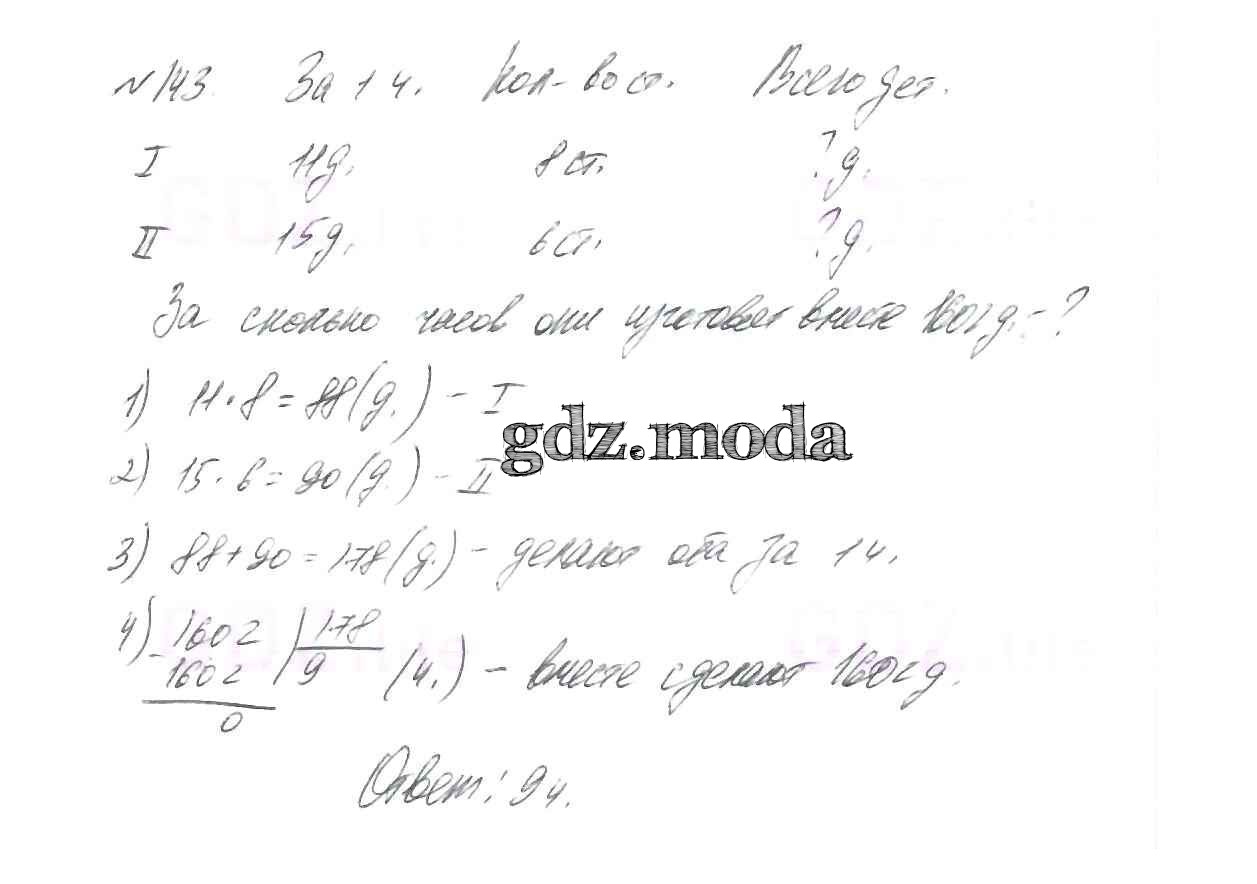 №143. За 1 ч. Кол-во ст. Всего дет.
I 11д. 8 ст. ? д.
II 15д. 6 ст. ? д.
За сколько часов они изготовят вместе 1602 д. - ?
1) 11·8=88(д.) - I
gdz.moda
2) 15·6=90(д.) - II
3) 88+90=178(д.) - делают оба за 1 ч.
4) 1602 | 178
- 1602 | 9 (ч.) - вместе сделают 1602 д.
0
Ответ: 9 ч.